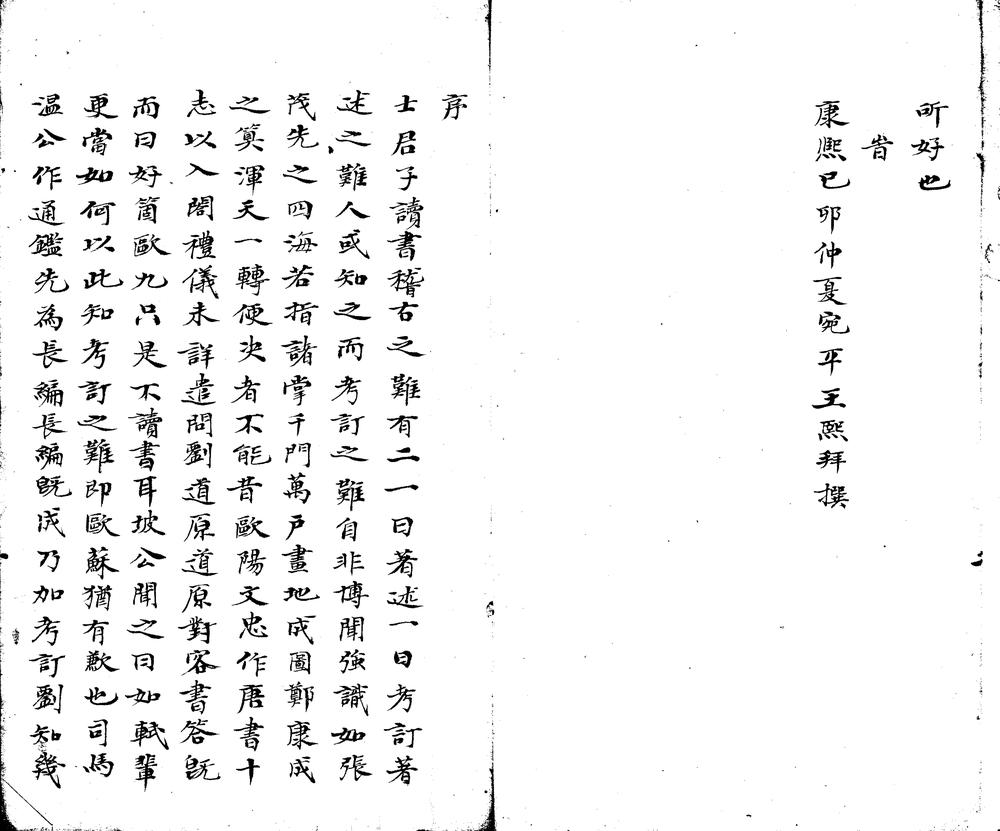 所好也
旹
康熙己卯仲夏宛平王熙拜撰
序
士君子讀書稽古之難有二一曰著述一曰考訂著
述之難人或知之而考訂之難自非博聞強識如張
茂先之四海若指諸掌千門萬户畫地成圖鄭康成
之筭渾天一轉便决者不能昔歐陽文忠作唐書十
志以入閤禮儀未詳遣問劉道原道原對客書答既
而曰好箇歐九只是不讀書耳坡公聞之曰如軾輩
更當如何以此知考訂之難即歐蘇猶有歉也司馬
温公作通鑑先為長編長編既成乃加考訂劉知幾